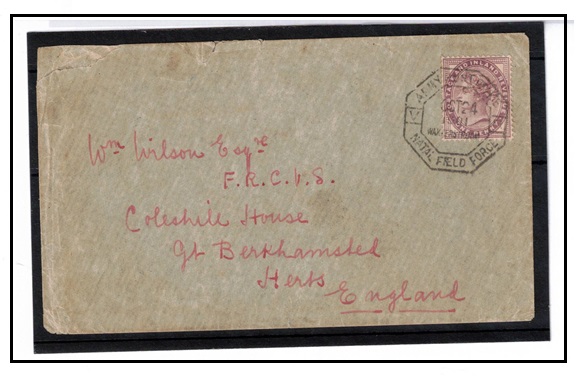 Wm Wilson Esqre
F.R.C.V.S.
Coleshill House
Gt Berkhamsted
Herts
England
ARMY
OCT 24
01
NATAL FIELD FORCE
INLAND REVENUE